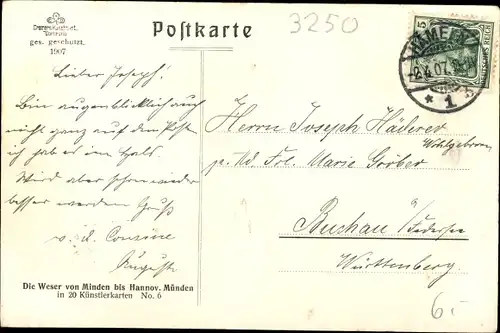 Postkarte
3250
ges. geschützt.
1907
5
DEUTSCHES REICH
HAMELN
-8.4.07.
* 1 b
Lieber Joseph!
Bin augenblicklich auch
nicht ganz auf dem Posten
ich hab es im Hals.
Wird aber schon wieder
besser werden Gruß
v. d. Cousine
Auguste
Herrn Joseph Häderer
Wohlgeboren
p. Ad. Frl. Marie Gröber
Buchau a/Federsee
Württenberg.
Die Weser von Minden bis Hannov. Münden
in 20 Künstlerkarten No. 6
6.-